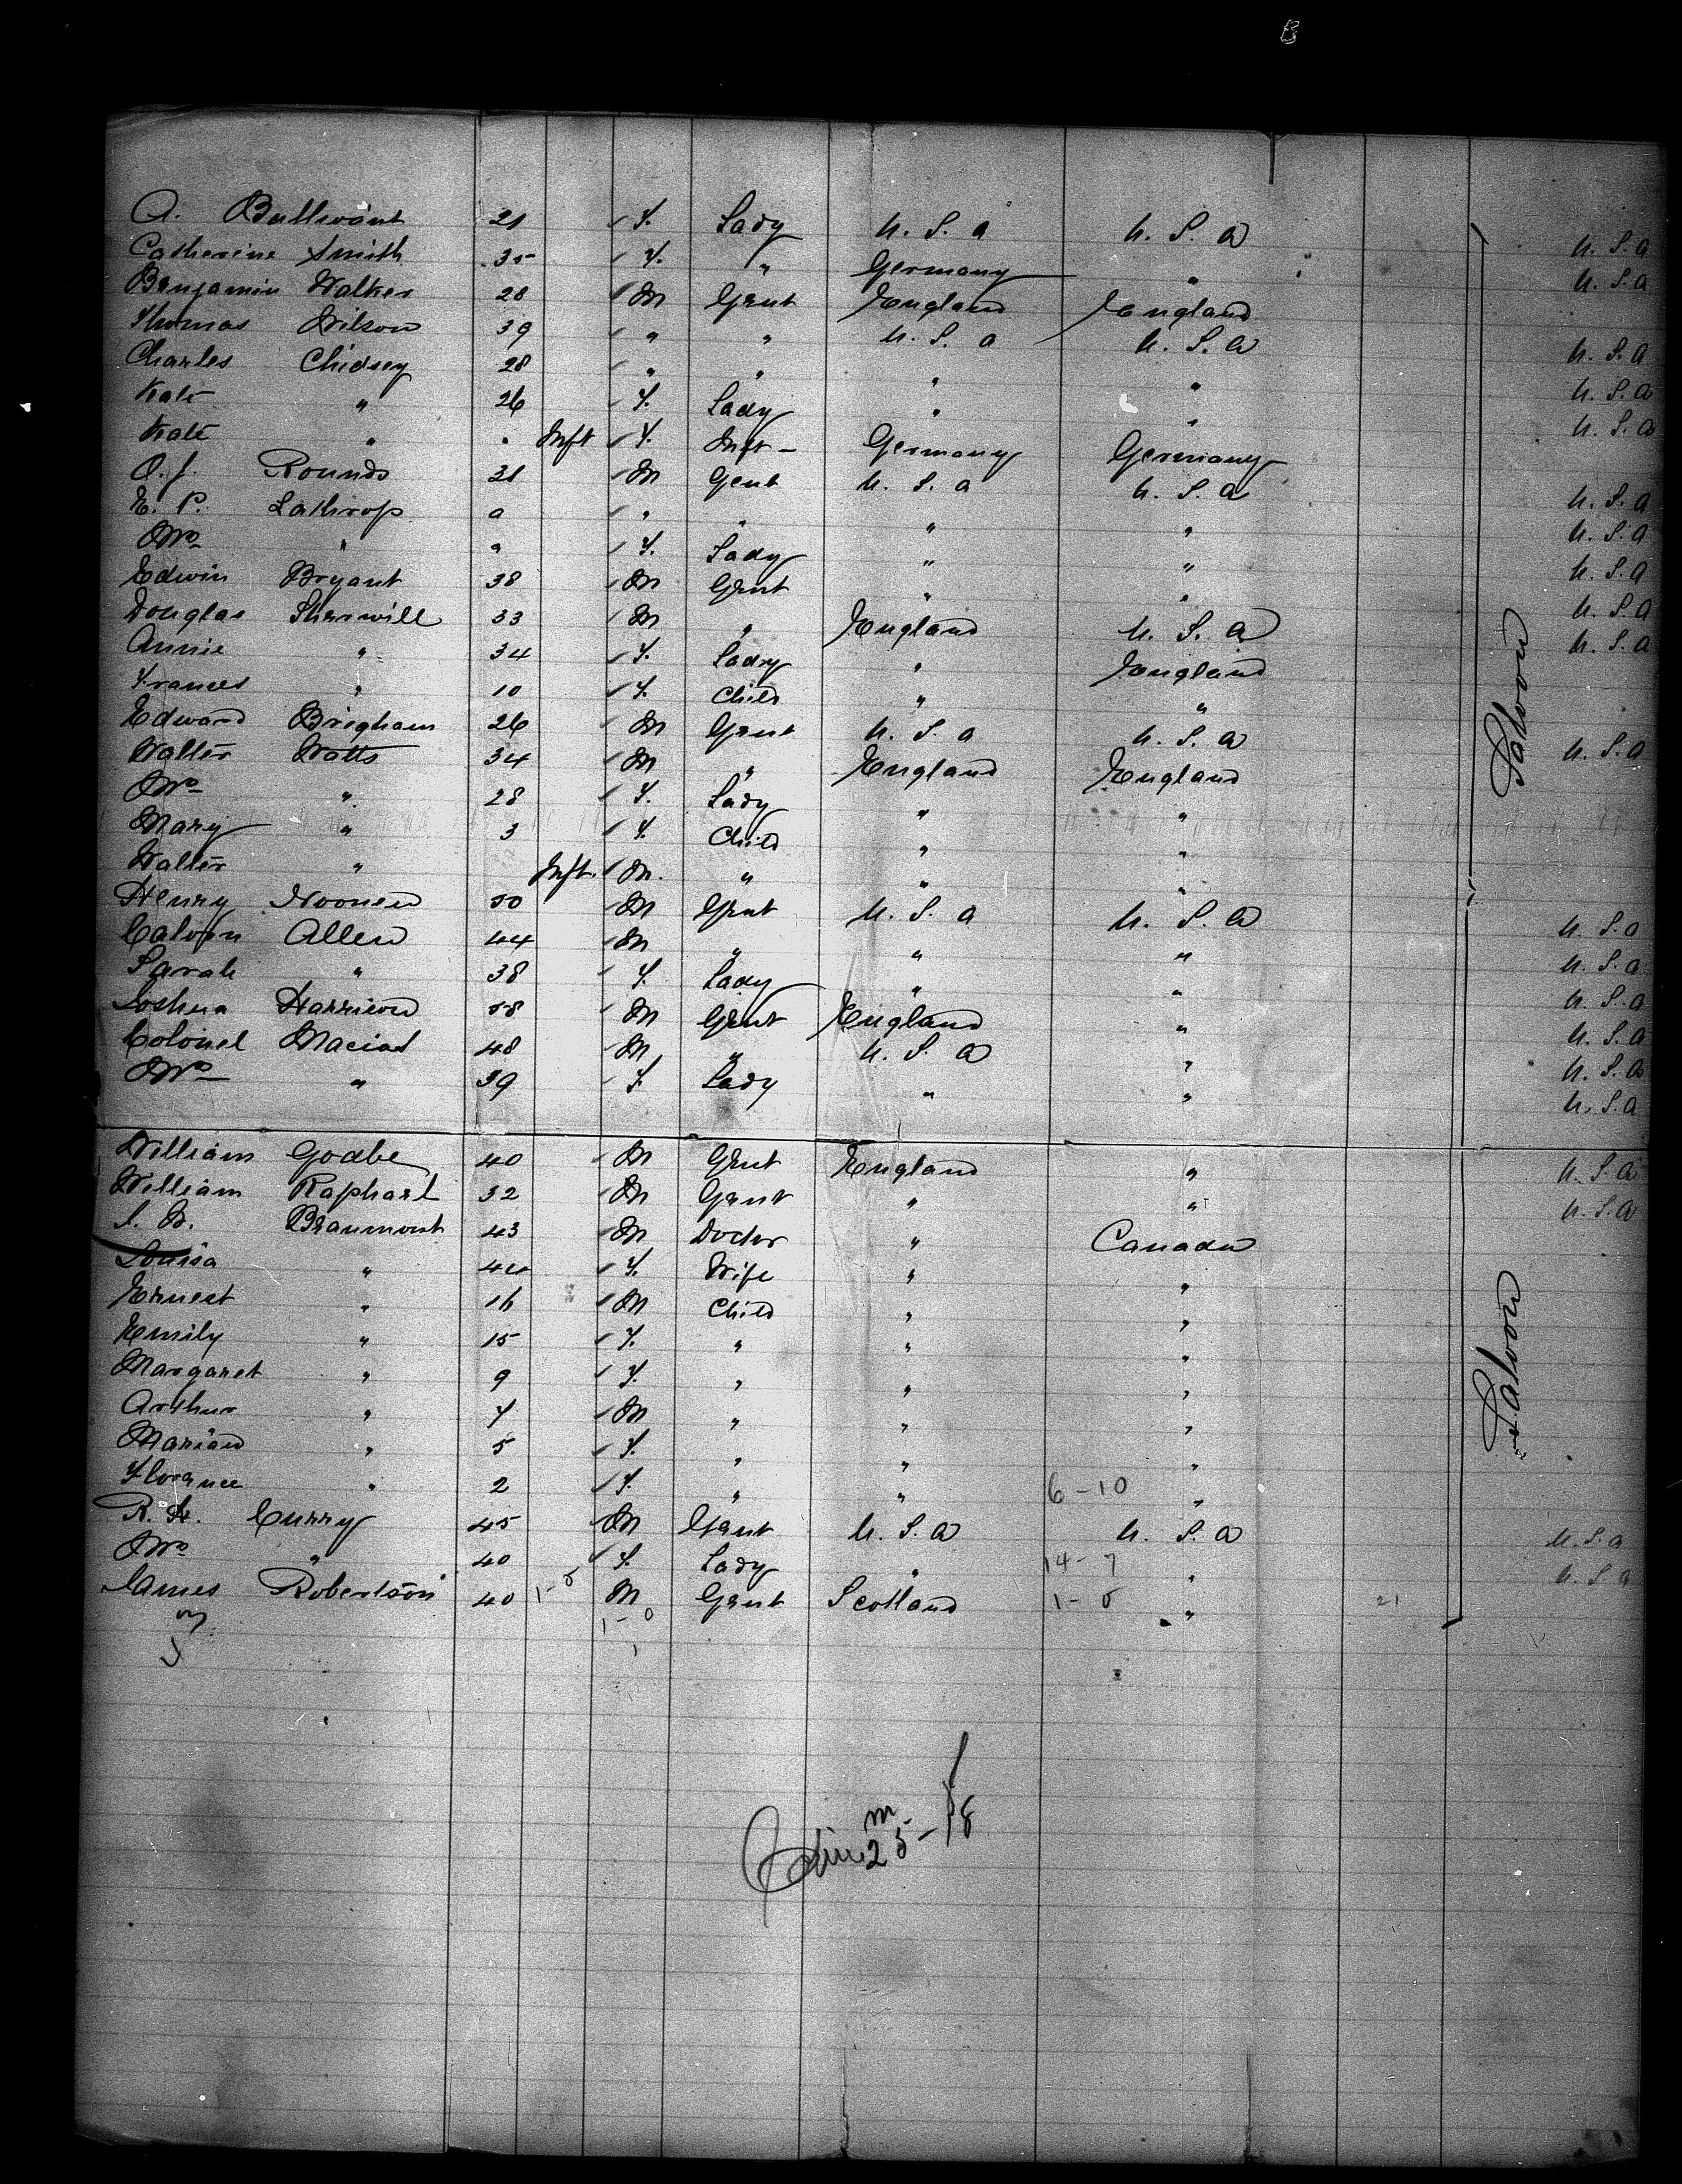 A. Bullwant 21 F. Lady U. S. a U. S. a U. S. a
Catherine Smith 35 F. " Germany " U. S. a
Benjamin Walker 28 M Gent England England
Thomas Wilson 39 " " U. S. a U. S. a U. S. a
Charles Chidsey 28 " " " " U. S. a
Kate " 26 F. Lady " " U. S. a
Kate " " Inft F. Inft - Germany Germany
O. J. Rounds 21 M Gent U. S. a U. S. a U. S. a
E. P. Lathrop a " " " " U. S. a
Mrs " a F. Lady " " U. S. a
Edwin Bryant 38 M Gent " " U. S. a
Douglas Sherwill 33 M " England U. S. a U. S. a
Annie " 34 F. Lady " England
Frances " 10 F. Child " "
Edward Brigham 26 M Gent U. S. a U. S. a U. S. a
Walter Watts 34 M " England England
Mrs " 28 F. Lady " "
Mary " 3 F. Child " "
Walter " Inft. M. " " "
Henry Noonen 50 M Gent U. S. a U. S. a U. S. a
Calvin Allen 44 M " " " U. S. a
Sarah " 38 F. Lady " " U. S. a
Joshua Harrison 58 M Gent England " U. S. a
Colonel 48 M " U. S. a " U. S. a
Mrs " 39 F. Lady " " U. S. a
William Godbe 40 M Gent England " U. S. a
William Raphael 32 M Gent " " U. S. a
Beaumont 43 M Doctor " Canada
Louisa " 44 F. Wife " "
Ernest " 16 M Child " "
Emily " 15 F. " " "
Margaret " 9 F. " " "
Arthur " 7 M " " "
Marian " 5 F. " " "
Florence " 2 F. " " 6-10 "
R. H. Curry 45 M Gent U. S. a U. S. a U. S. a
Mrs " 40 F. Lady " 14-7 " U. S. a
James Robertson 40 1-0 M Gent Scotland 1-0 " 21
1-0
1
Saloon
Saloon
m
25-18